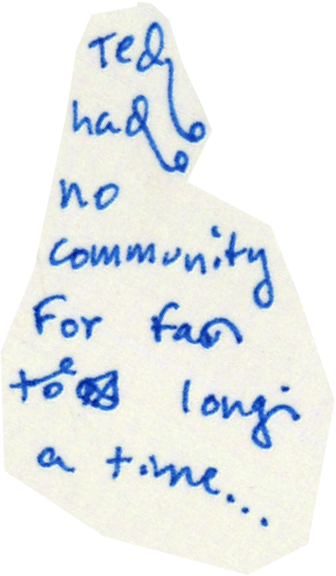 Ted
had
no
community
For far
too long
a time...